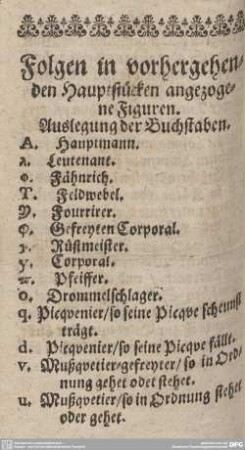 Folgen in vorhergehen-
den Hauptstücken angezoge-
ne Figuren.
Auslegung der Buchstaben.
A. Hauptmann.
λ. Leutenant.
Fähnrich.
T. Feldwebel.
Fourrirer.
φ. Gefreyten Corporal.
Rüstmeister.
y. Corporal.
Pfeiffer.
o. Drommelschlager.
q. Picqvenier/so seine Picqve scheunst
trägt.
d. Picqvenier/so seine Picqve fällt.
v. Mußqvetier-gefreyter/so in Ord-
nung gehet odet stehet.
u. Mußqvetier/so in Ordnung stehet
oder gehet.